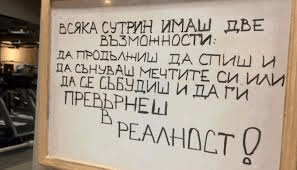 ВСЯКА СУТРИН ИМАШ ДВЕ
ВЪЗМОЖНОСТИ:
ДА ПРОДЪЛЖИШ ДА СПИШ И
ДА СЪНУВАШ МЕЧТИТЕ СИ ИЛИ
ДА СЕ СЪБУДИШ И ДА ГИ
ПРЕВЪРНЕШ
В
РЕАЛНОСТ!